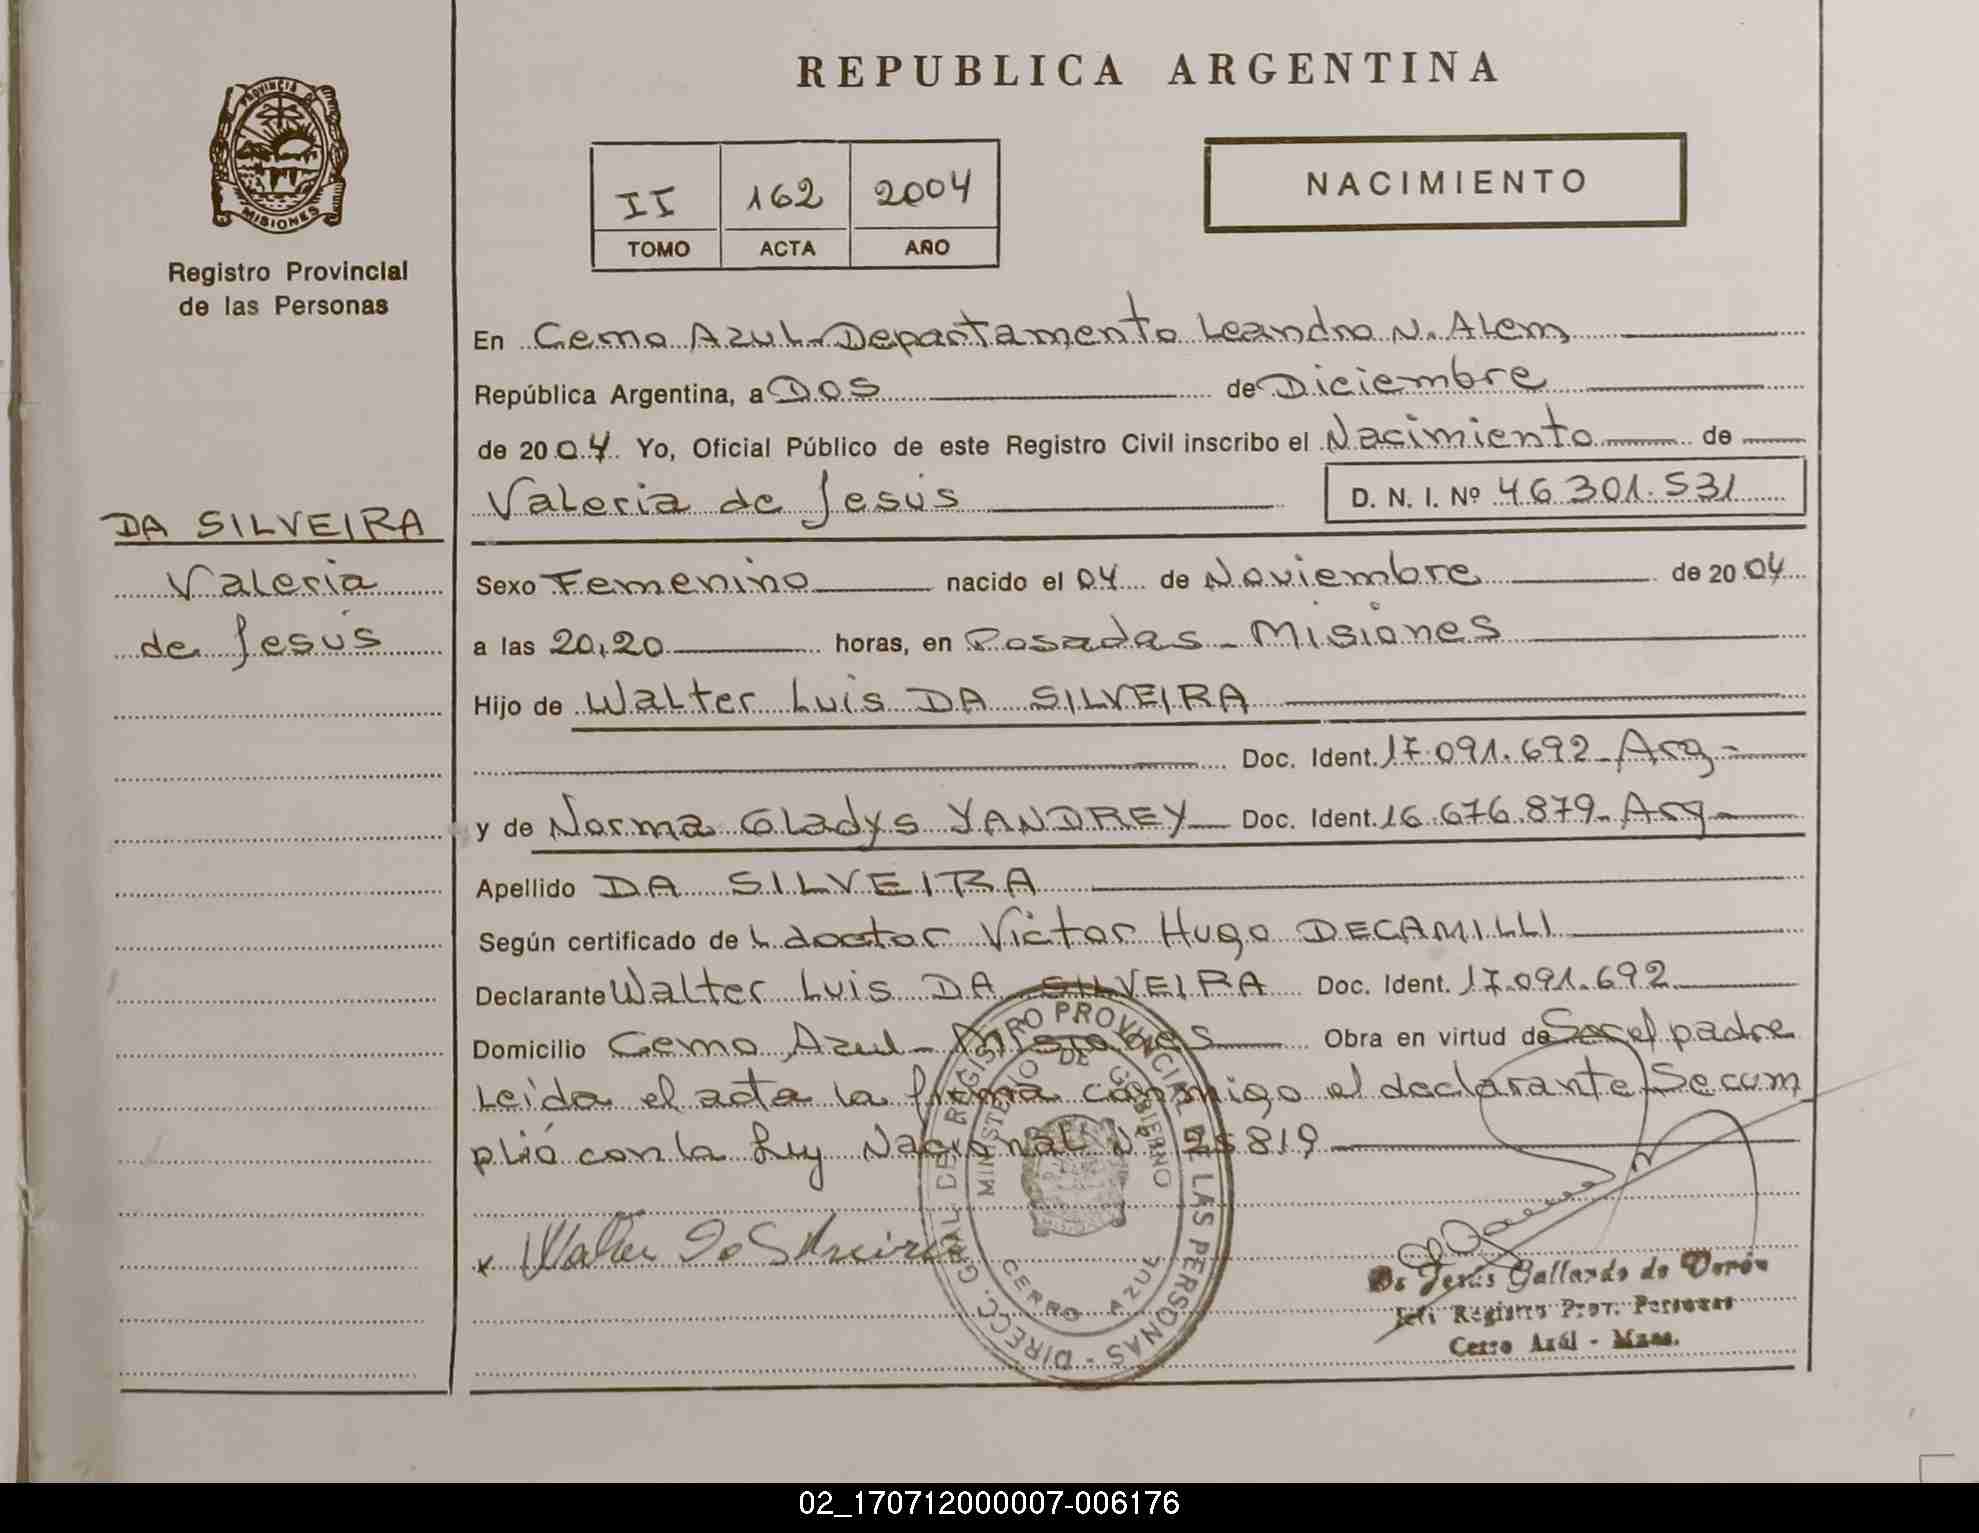 REPUBLICA ARGENTINA
PROVINCIA DE
MISIONES
Registro Provincial
de las Personas
II 162 2004
TOMO ACTA AÑO
NACIMIENTO
En Cerro Azul - Departamento Leandro N. Alem
República Argentina, a Dos de Diciembre
de 2004. Yo, Oficial Público de este Registro Civil inscribo el Nacimiento de
Valeria de Jesús D. N. I. Nº 46.301.531
DA SILVEIRA
Valeria
de Jesús
Sexo Femenino nacido el 04 de Noviembre de 2004
a las 20,20 horas, en Posadas - Misiones
Hijo de Walter Luis DA SILVEIRA
Doc. Ident. 17.091.692 - Arg -
y de Norma Gladys YANDREY Doc. Ident. 16.676.879 - Arg -
Apellido DA SILVEIRA
Según certificado de L doctor Victor Hugo DECAMILLI
Declarante Walter Luis DA SILVEIRA Doc. Ident. 17.091.692
Domicilio Cerro Azul - Misiones Obra en virtud de Ser el padre
Leída el acta la firma conmigo el declarante Se cum
plió con la Ley Nacional Nº 25819
x Walter Da Silveira
DIRECC. GRAL DE REGISTRO PROVINCIAL DE LAS PERSONAS -
MINISTERIO DE GOBIERNO
CERRO AZUL
De Jesús Gallardo de Verón
Jefe Registro Prov. Personas
Cerro Azúl - Mnes.
02_170712000007-006176